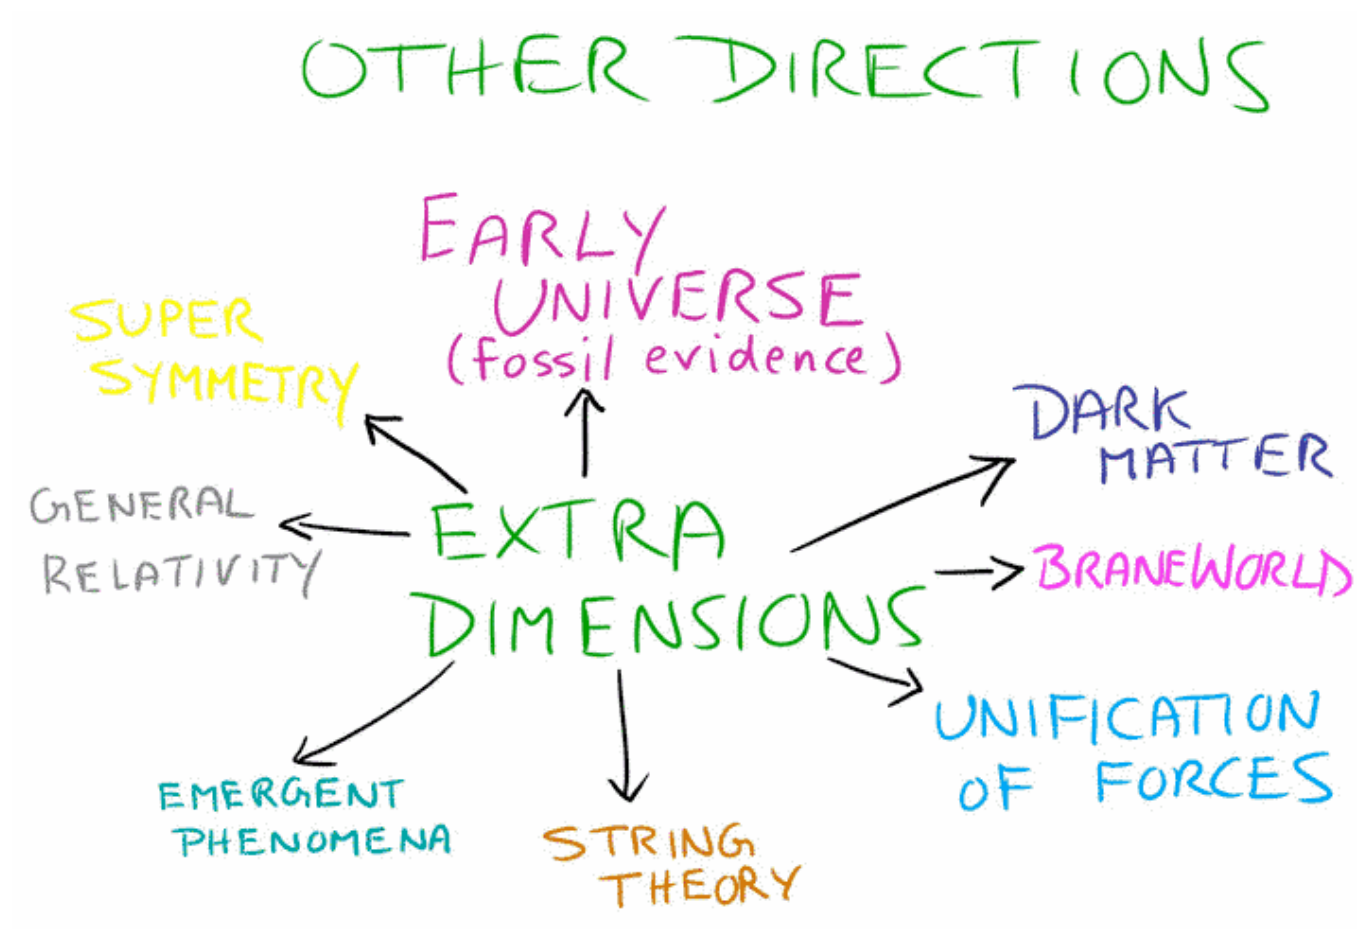 OTHER DIRECTIONS
EARLY
UNIVERSE
(fossil evidence)
SUPER
SYMMETRY
DARK
MATTER
GENERAL
RELATIVITY
EXTRA
DIMENSIONS
BRANEWORLD
UNIFICATION
OF FORCES
EMERGENT
PHENOMENA
STRING
THEORY